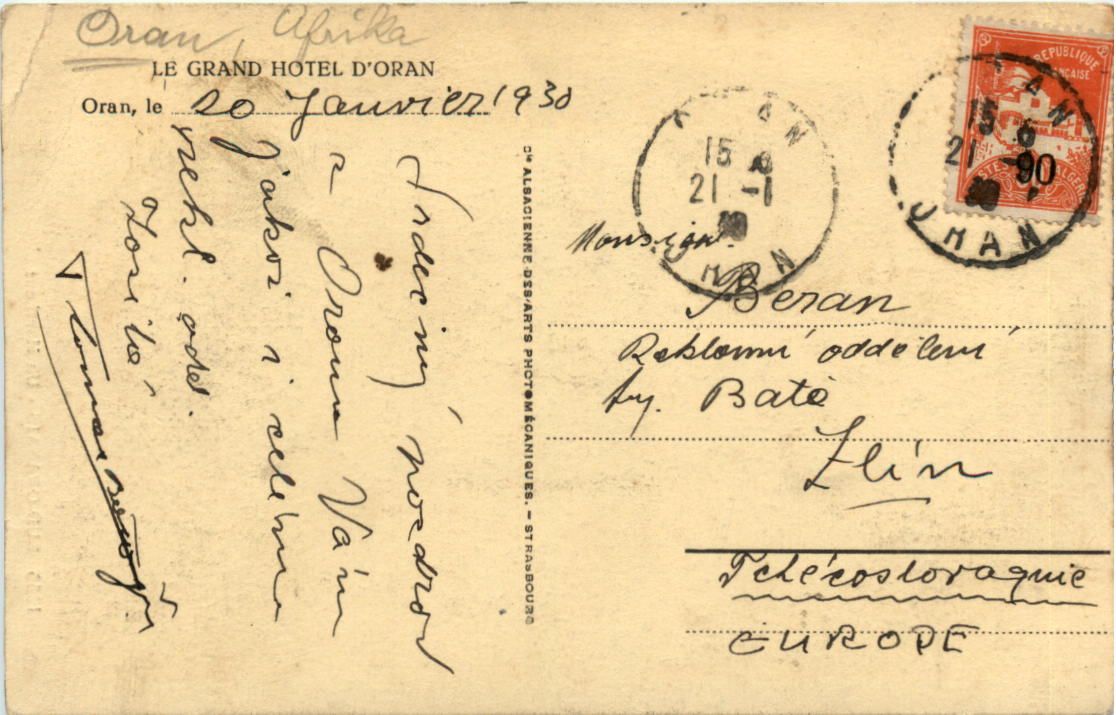 Oran, Afrika
LE GRAND HOTEL D'ORAN
Oran, le 20 Janvier 1930
Srdečný pozdrav
z Oranu Vám
jakož i celému
rekl. odd.
zasílá
Cie ALSACIENNE DES ARTS PHOTOMÉCANIQUES. – STRASBOURG
ORAN
15
21 -1
30
ORAN
REPUBLIQUE
FRANÇAISE
90
POSTES ALGERIE
ORAN
15
21 -1
ORAN
Monsieur
Beran
Reklamní oddělení
fy. Baťa
Zlín
Tchécoslovaquie
EUROPE